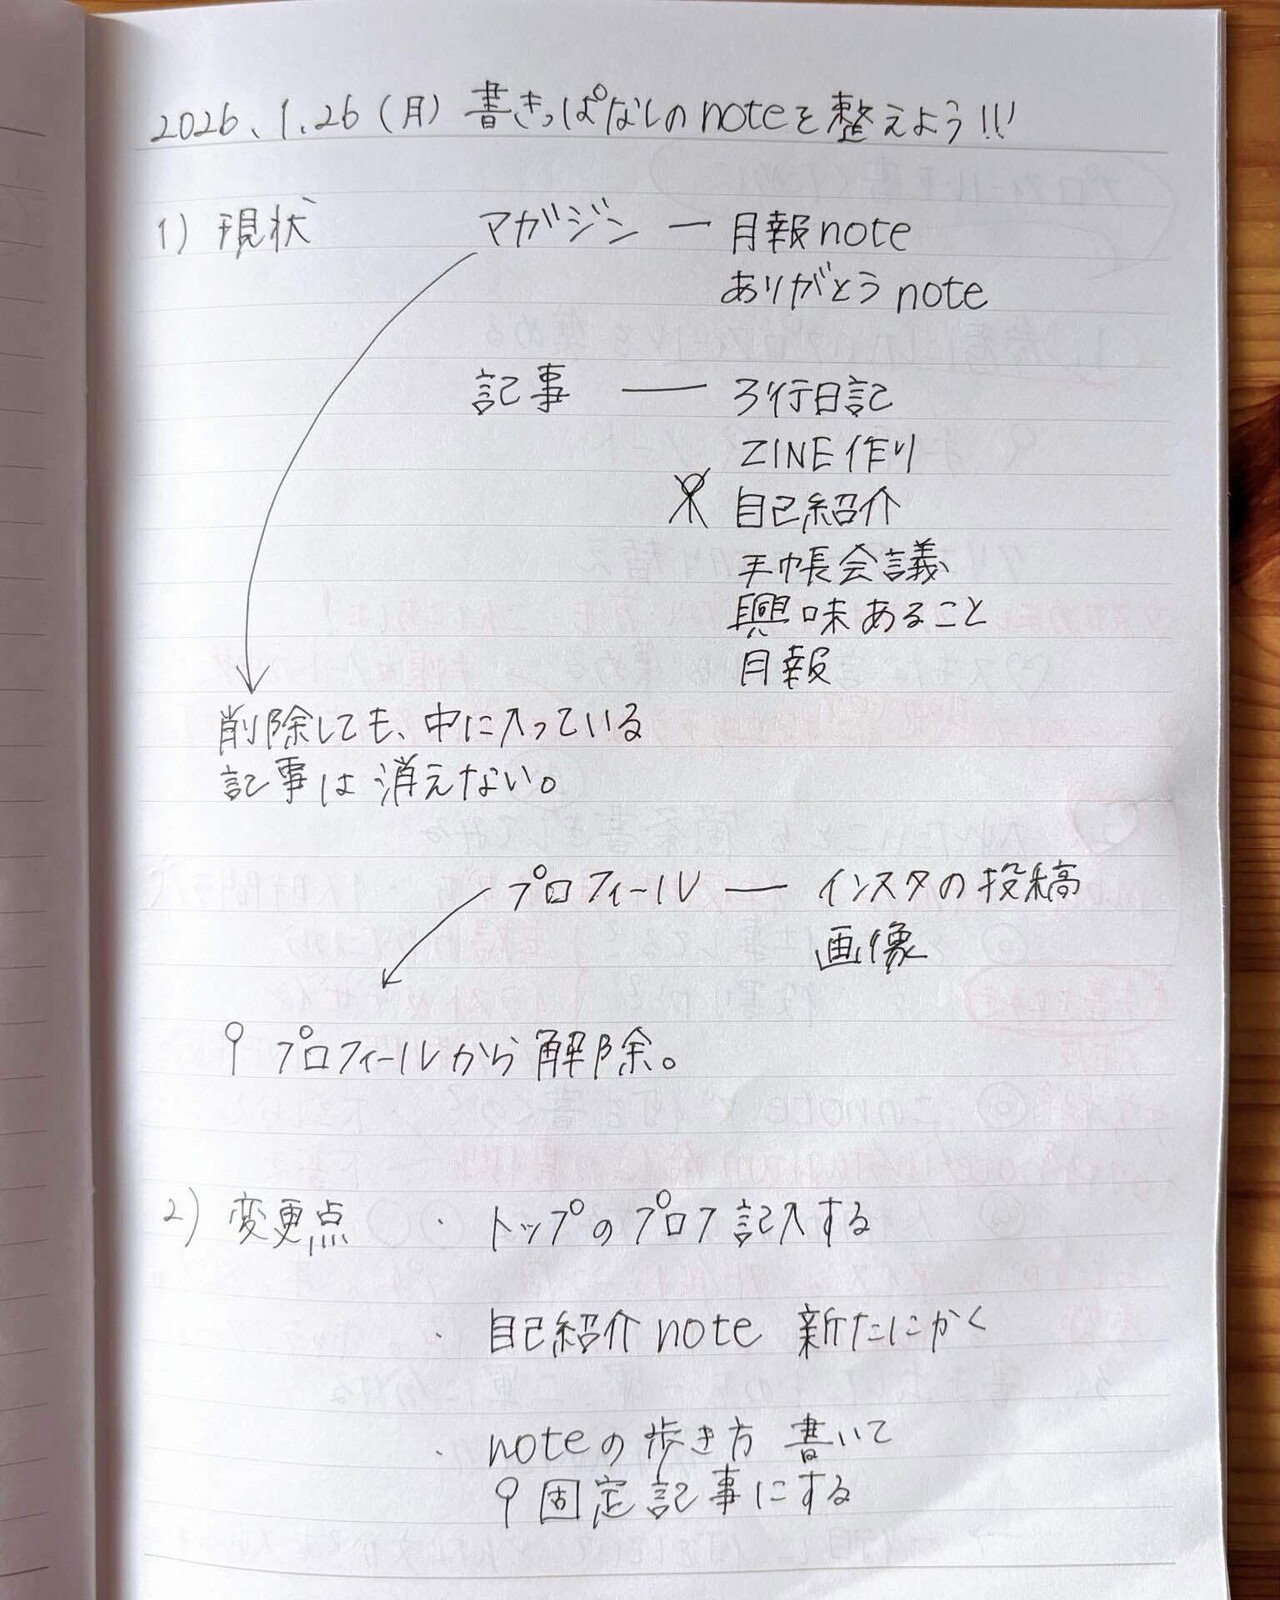 2026.1.26(月) 書きっぱなしのnoteを整えよう!!!
1) 現状 マガジン ー 月報note
ありがとうnote
記事 ー 3行日記
ZINE作り
自己紹介
手帳会議
興味あること
月報
削除しても、中に入っている
記事は消えない。
プロフィール ー インスタの投稿
画像
プロフィールから解除。
2) 変更点 ・トップのプロフ記入する
・自己紹介note 新たにかく
・noteの歩き方 書いて
固定記事にする